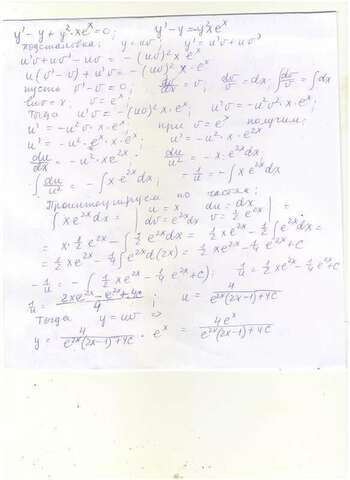 y' - y + y² · xeˣ = 0; y' - y = -y²xeˣ
подстановка: y = uv; y' = u'v + uv'
u'v + uv' - uv = -(uv)² x eˣ
u'v + u(v' - v) = -(uv)² · x eˣ
пусть v' - v = 0; dv/dx = v; dv/v = dx; ∫dv/v = ∫dx
lnv = x. v = eˣ.
Тогда u'v = -(uv)² x · eˣ; u'v = -u²v² · x · eˣ;
u' = -u²v · x · eˣ; при v = eˣ получим:
u' = -u² · eˣ · x · eˣ; u' = -u² · x · e²ˣ
du/dx = -u² · x e²ˣ; du/u² = -x · e²ˣ dx;
∫du/u² = -∫x e²ˣ dx; = 1/u = -∫x e²ˣ dx
Проинтегрируем по частям:
∫x e²ˣ dx = | u = x du = dx dv = e²ˣdx v = ½ e²ˣ | =
= x · ½ e²ˣ - ∫½ e²ˣ dx = ½ x e²ˣ - ½ ∫e²ˣ dx =
= ½ x e²ˣ - ¼ ∫e²ˣ d(2x) = ½ x e²ˣ - ¼ e²ˣ + C
-1/u = -(½ x e²ˣ - ¼ e²ˣ + C); 1/u = ½ x e²ˣ - ¼ e²ˣ + C
1/u = (2x e²ˣ - e²ˣ + 4C)/4; u = 4/(e²ˣ(2x-1)+4C)
Тогда y = uv ⇒
y = 4/(e²ˣ(2x-1)+4C) · eˣ = 4eˣ/(e²ˣ(2x-1)+4C)